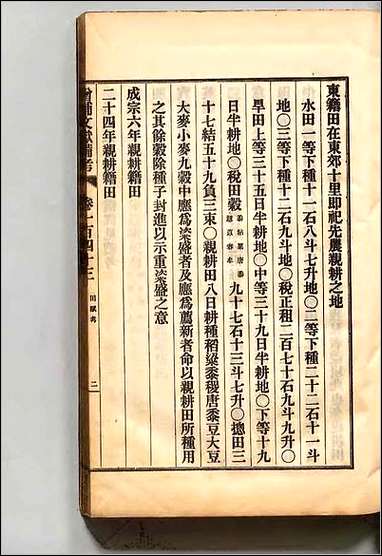 東籍田在東郊十里卽祀先農親耕之地
水田一等下種十一石八斗七升地〇二等下種二十二石十一斗
地〇三等下種十二石九斗地〇稅正租二百七十石九斗九升〇
旱田上等三十五日半耕地〇中等三十九日半耕地〇下等十九
日半耕地〇稅田穀 九十七石十三斗七升〇摠田三
十七結五十九負三束〇親耕田八日耕種稻粱黍稷唐黍豆大豆
大麥小麥九穀中應爲粢盛者及應爲薦新者命以親耕田所種用
之其餘穀除種子封進以示重粢盛之意
成宗六年親耕田
二十四年親耕籍田
增補文獻備考 卷一百四十三 田賦考 二